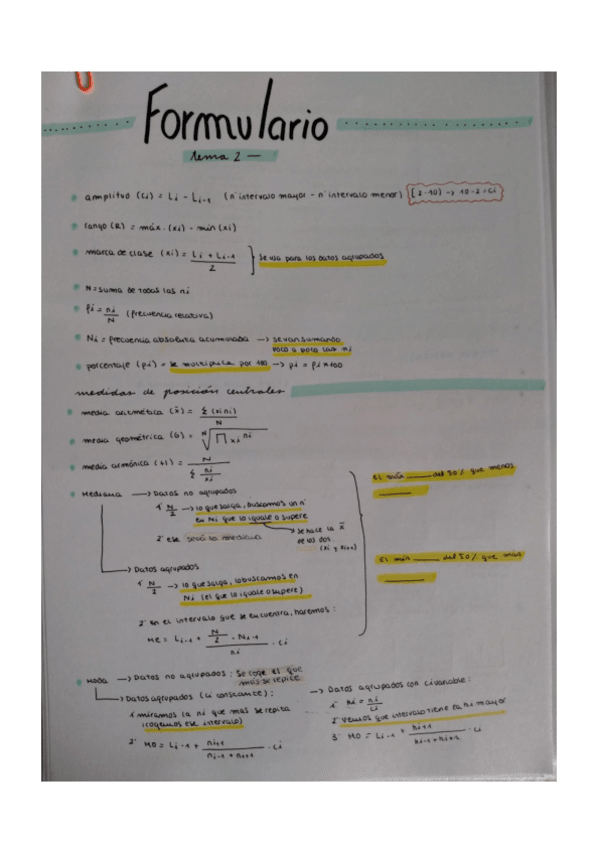 Formulario
tema 2 —
amplitud (Ci) = Li - Li-1 (nº intervalo mayor - nº intervalo menor) [2-10) → 10-2 = Ci
rango (R) = máx. (xi) - min (xi)
marca de clase (xi) = (Li + Li-1) / 2 se usa para los datos agrupados
N = suma de todas las ni
fi = ni / N (frecuencia relativa)
Ni = frecuencia absoluta acumulada → se van sumando
poco a poco las ni
porcentaje (pi) = se multiplica por 100 → pi = fi × 100
medidas de posición centrales
media aritmética (x̄) = Σ(xi ni) / N
media geométrica (G) = ᴺ√∏ xi^ni
media armónica (H) = N / Σ (ni / xi)
Mediana → Datos no agrupados
1º N/2 → lo que salga, buscamos un nº
en Ni que lo iguale o supere
→ se hace la x̄
de los dos
(xi y xi+1)
2º ese será la mediana
→ Datos agrupados
1º N/2 → lo que salga, lo buscamos en
Ni (el que lo iguale o supere)
2º En el intervalo que se encuentra, haremos:
Me = Li-1 + (N/2 - Ni-1) / ni · ci
El más ____ del 50% que menos
____
El más ____ del 50% que más
____
Moda → Datos no agrupados: se coge el que
más se repite
→ Datos agrupados (ci constante):
1º miramos la ni que más se repita
(cogemos ese intervalo)
2º Mo = Li-1 + ni+1 / (ni-1 + ni+1) · ci
→ Datos agrupados con ci variable:
1º hi = ni / ci
2º vemos que intervalo tiene la hi mayor
3º Mo = Li-1 + hi+1 / (hi-1 + hi+1) · ci